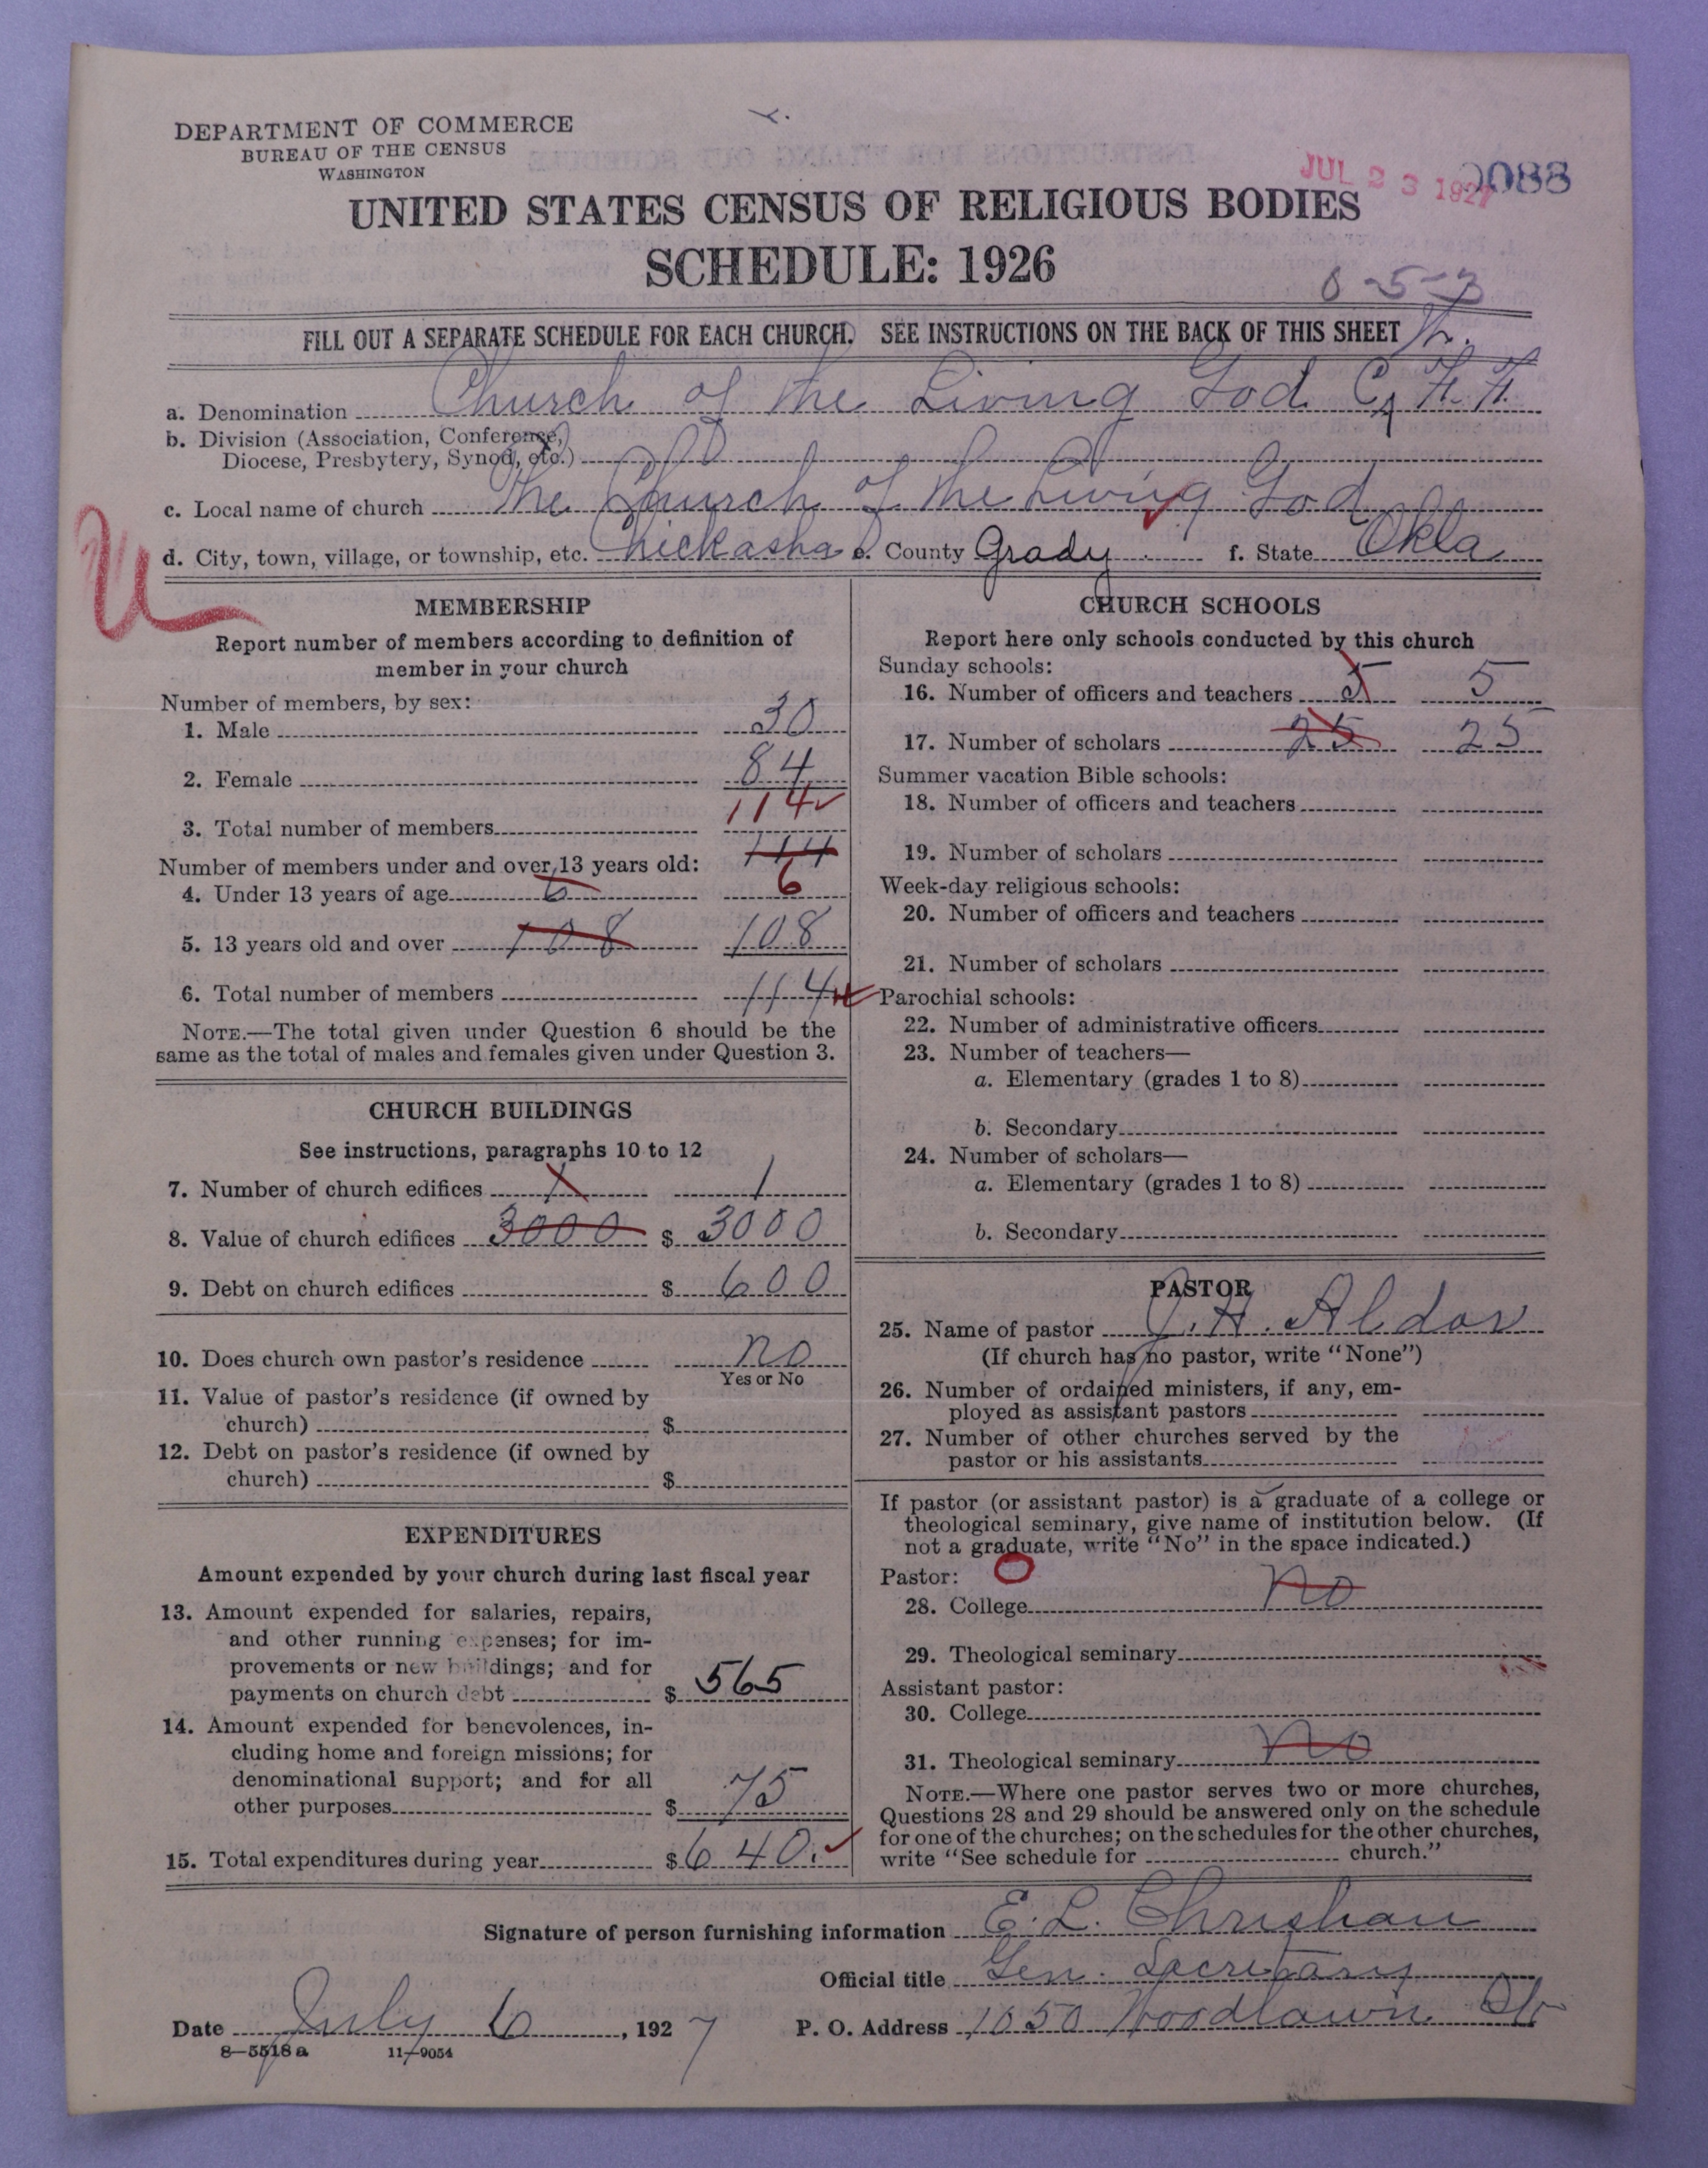 DEPARTMENT OF COMMERCE
BUREAU OF THE CENSUS
WASHINGTON
JUL 23 1927
0088
UNITED STATES CENSUS OF RELIGIOUS BODIES
SCHEDULE: 1926
8-5-3
FILL OUT A SEPARATE SCHEDULE FOR EACH CHURCH. SEE INSTRUCTIONS ON THE BACK OF THIS SHEET
a. Denomination Church of the Living God C, F. F.
b. Division (Association, Conference,
Diocese, Presbytery, Synod, etc.)
c. Local name of church The Church of the Living God
d. City, town, village, or township, etc. Chickasha e. County Grady f. State Okla
U
MEMBERSHIP
Report number of members according to definition of
member in your church
Number of members, by sex:
1. Male 30
2. Female 84
114
3. Total number of members
Number of members under and over 13 years old: 114
4. Under 13 years of age 6 6
5. 13 years old and over 108 108
6. Total number of members 114
NOTE.—The total given under Question 6 should be the
same as the total of males and females given under Question 3.
CHURCH BUILDINGS
See instructions, paragraphs 10 to 12
7. Number of church edifices 1 1
8. Value of church edifices 3000 $ 3000
9. Debt on church edifices $ 600
10. Does church own pastor's residence no
Yes or No
11. Value of pastor's residence (if owned by
church) $
12. Debt on pastor's residence (if owned by
church) $
EXPENDITURES
Amount expended by your church during last fiscal year
13. Amount expended for salaries, repairs,
and other running expenses; for im-
provements or new buildings; and for
payments on church debt $ 565
14. Amount expended for benevolences, in-
cluding home and foreign missions; for
denominational support; and for all
other purposes $ 75
15. Total expenditures during year $ 640.
CHURCH SCHOOLS
Report here only schools conducted by this church
Sunday schools:
16. Number of officers and teachers 5 5
17. Number of scholars 25 25
Summer vacation Bible schools:
18. Number of officers and teachers
19. Number of scholars
Week-day religious schools:
20. Number of officers and teachers
21. Number of scholars
Parochial schools:
22. Number of administrative officers
23. Number of teachers—
a. Elementary (grades 1 to 8)
b. Secondary
24. Number of scholars—
a. Elementary (grades 1 to 8)
b. Secondary
PASTOR
25. Name of pastor J. H. Aldov
(If church has no pastor, write "None")
26. Number of ordained ministers, if any, em-
ployed as assistant pastors
27. Number of other churches served by the
pastor or his assistants
If pastor (or assistant pastor) is a graduate of a college or
theological seminary, give name of institution below. (If
not a graduate, write "No" in the space indicated.)
Pastor: O
28. College no
29. Theological seminary
Assistant pastor:
30. College
31. Theological seminary no
NOTE.—Where one pastor serves two or more churches,
Questions 28 and 29 should be answered only on the schedule
for one of the churches; on the schedules for the other churches,
write "See schedule for church."
Signature of person furnishing information E. L. Christian
Official title Gen. Secretary
Date July 6, 1927 P. O. Address 1050 Woodlawn
8—5518 a 11—9054